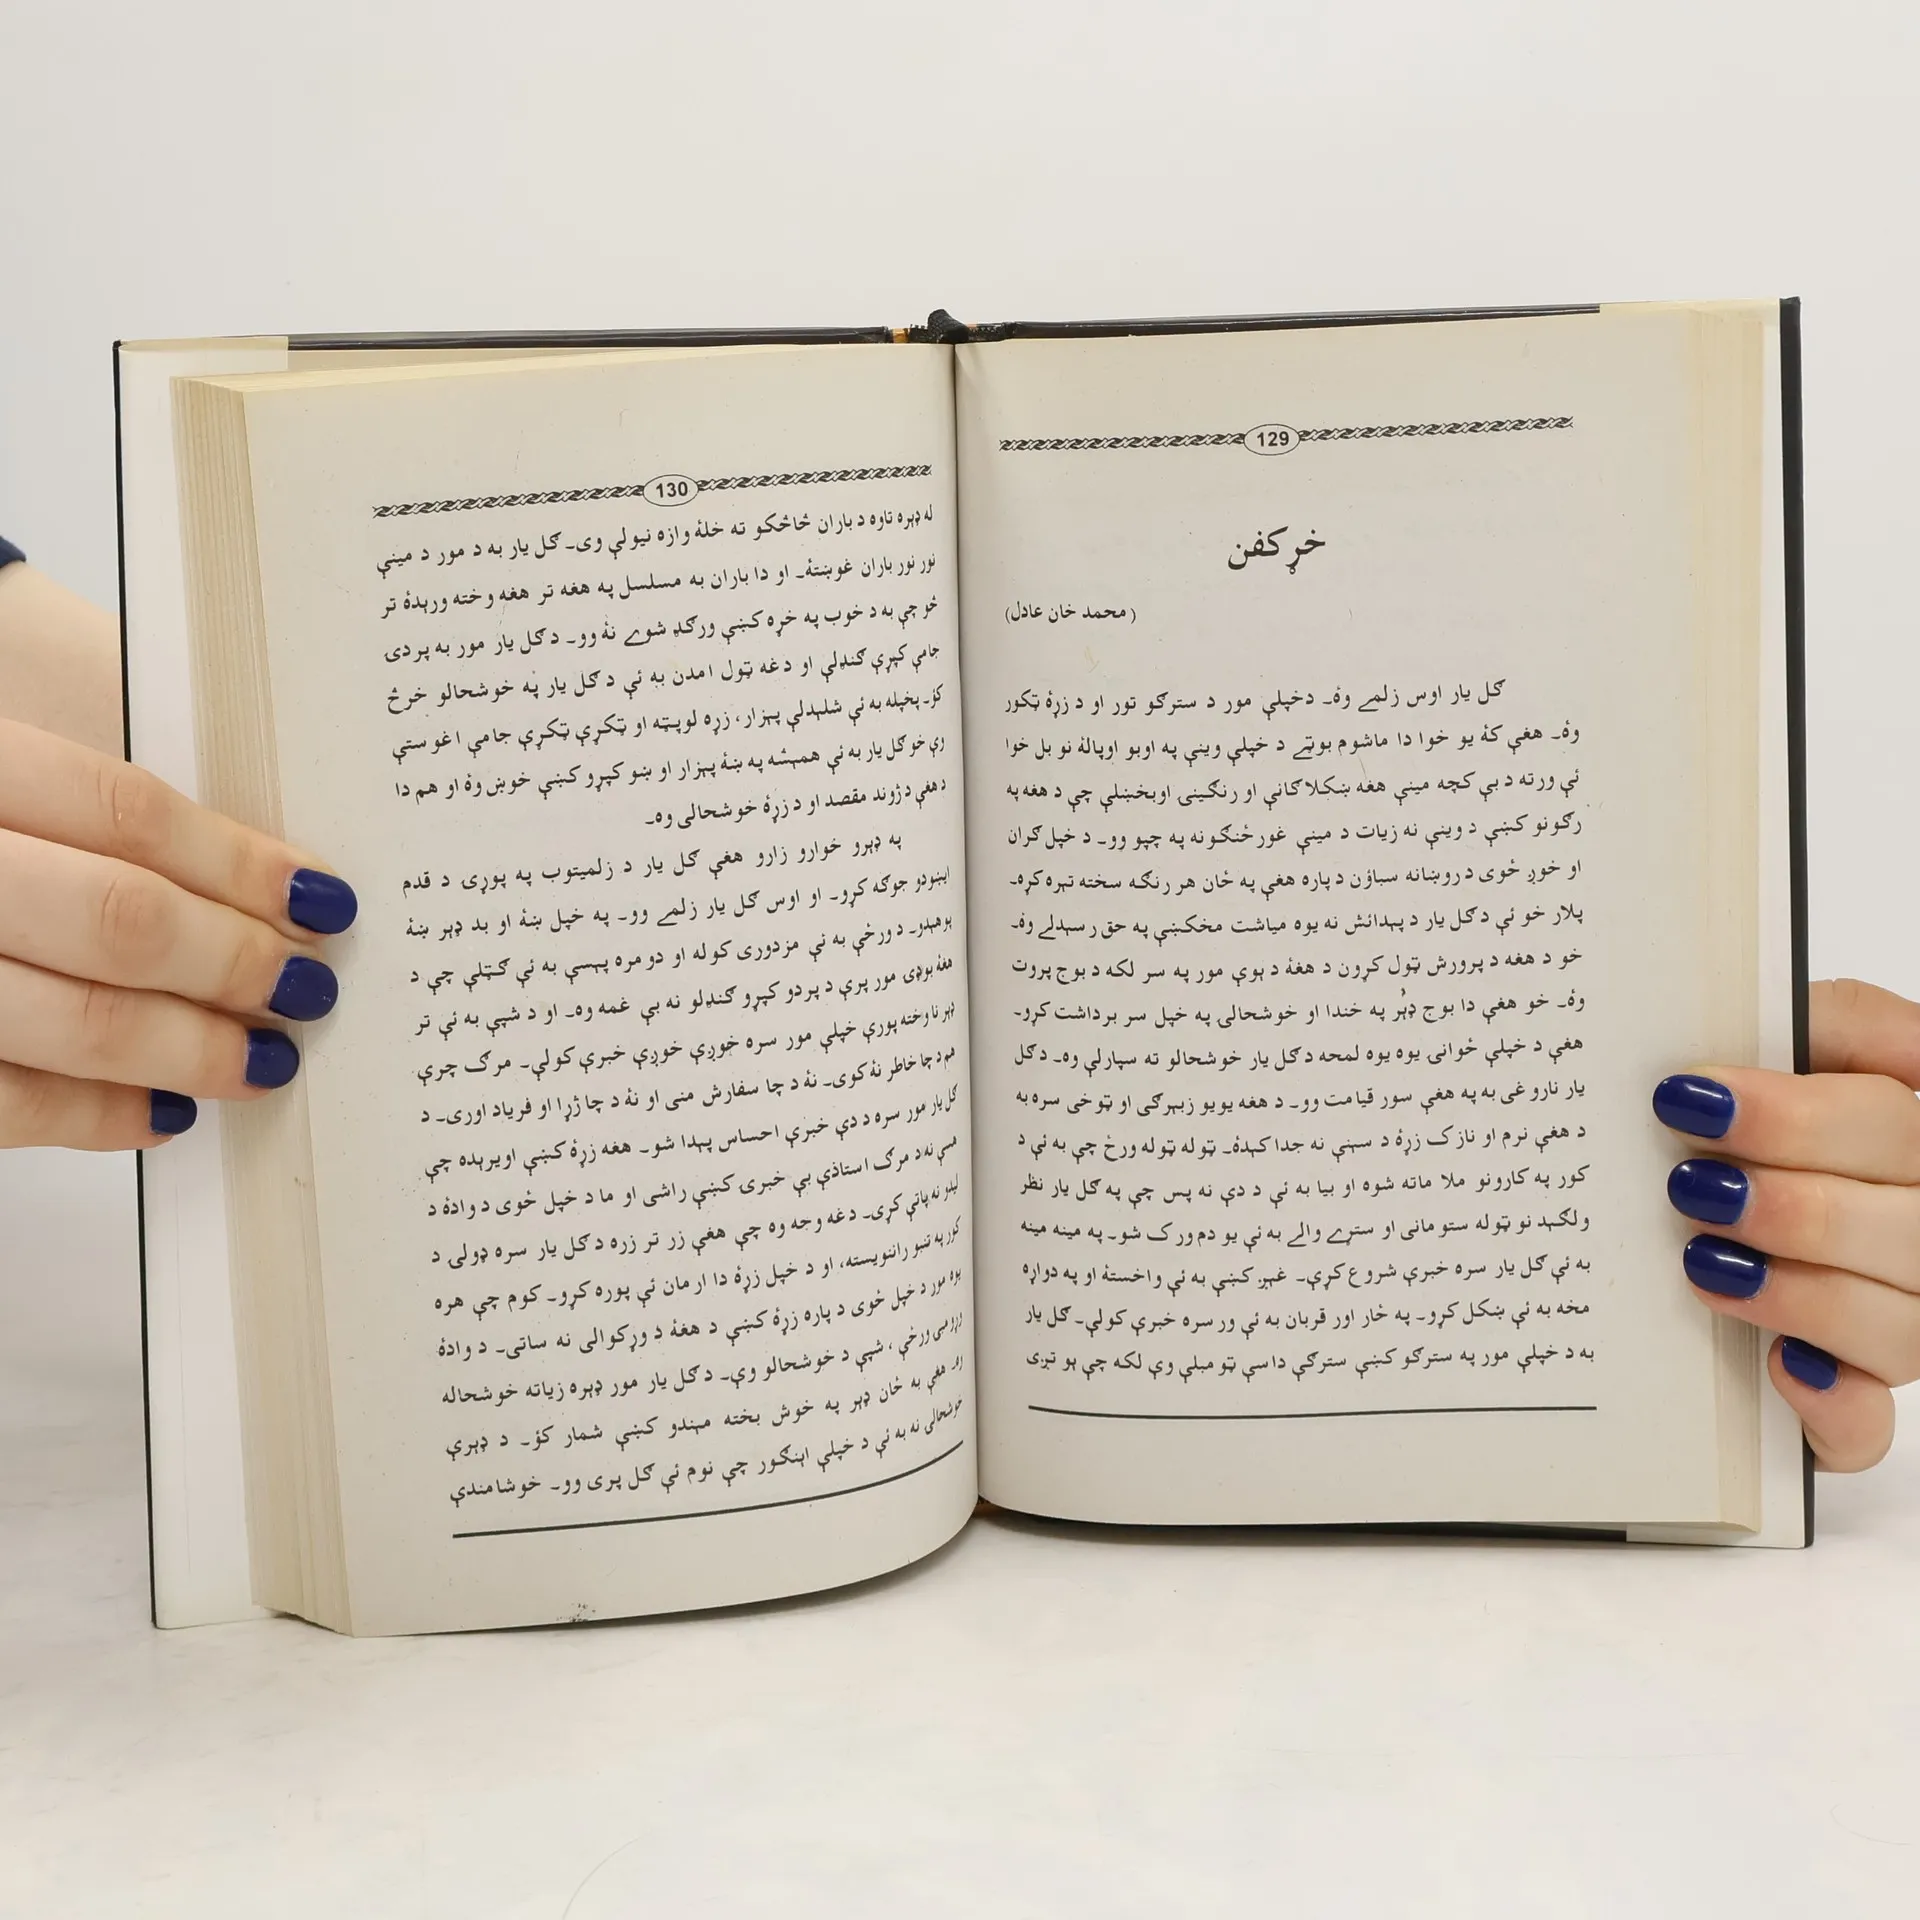 129
خړ کفن
(محمد خان عادل)
ګل یار اوس زلمے وۀ۔ دخپلې مور د سترګو تور او د زړۀ ټکور
وۀ۔ هغې کۀ یو خوا دا ماشوم بوټے د خپلې وینې په اوبو اوپالۀ نو بل خوا
ئې ورته د بې کچه مینې هغه ښکلا ګانې او رنګینۍ اوبخښلې چې د هغه په
رګونو کښې د وینې نه زیات د مینې غورځنګونه په چپو وو۔ د خپل ګران
او خوږ ځوی د روښانه سباؤن د پاره هغې په ځان هر رنګه سخته تېره کړه۔
پلار خو ئې د ګل یار د پېدائش نه یوه میاشت مخکښې په حق رسېدلے وۀ۔
خو د هغه د پرورش ټول کړون د هغۀ د ېوې مور په سر لکه د بوج پروت
وۀ۔ خو هغې دا بوج ډېر په خندا او خوشحالۍ په خپل سر برداشت کړو۔
هغې د خپلې ځوانۍ یوه یوه لمحه د ګل یار خوشحالو ته سپارلې وه۔ د ګل
یار ناروغی به په هغې سور قیامت وو۔ د هغه یو یو زېېرګی او ټوخی سره به
د هغې نرم او نازک زړۀ د سېنې نه جدا کېدۀ۔ ټوله ټوله ورځ چې به ئې د
کور په کارونو ملا ماته شوه او بیا به ئې د دې نه پس چې په ګل یار نظر
ولګېد نو ټوله ستومانی او ستړے والے به ئې یو دم ورک شو۔ په مینه مینه
به ئې ګل یار سره خبرې شروع کړې۔ غېږ کښې به ئې واخستۀ او په دواړه
مخه به ئې ښکل کړو۔ په ځار اور قربان به ئې ور سره خبرې کولې۔ ګل یار
به د خپلې مور په سترګو کښې سترګې داسې ټومبلې وې لکه چې یو تږی
130
له ډېره تاوه د باران څاڅکو ته خلۀ وازه نیولې وی۔ ګل یار به د مور د مینې
نور نور باران غوښتۀ۔ او دا باران به مسلسل په هغه تر هغه وخته ورېدۀ تر
څو چې به د خوب په خړه کښې ورګډ شوے نۀ وو۔ د ګل یار مور به پردۍ
جامې کپړې ګنډلې او دغه ټول امدن به ئې د ګل یار په خوشحالو خرڅ
کؤ۔ پخپله به ئې شلېدلې پېزار، زړه لوپټه او ټکړې ټکړې جامې اغوستې
وې خو ګل یار به ئې همېشه په ښۀ پېزار او ښو کپړو کښې خوښ وۀ او هم دا
د هغې د ژوند مقصد او د زړۀ خوشحالی وه۔
په ډېرو خوارو زارو هغې ګل یار د زلمیتوب په پوړۍ د قدم
ایښودو جوګه کړو۔ او اوس ګل یار زلمے وو۔ په خپل ښۀ او بد ډېر ښۀ
پوهېدو۔ د ورځې به ئې مزدوری کوله او دومره پېسې به ئې ګټلې چې د
هغۀ بوډۍ مور پرې د پردو کپړو ګنډلو نه بې غمه وه۔ او د شپې به ئې تر
ډېر ناوخته پورې خپلې مور سره خوږې خوږې خبرې کولې۔ مرګ چرې
هم د چا خاطر نۀ کوی۔ نۀ د چا سفارش منی او نۀ د چا ژړا او فریاد اوری۔ د
ګل یار مور سره د دې خبرې احساس پېدا شو۔ هغه زړۀ کښې اویرېده چې
نه د مرګ استاذې بې خبرۍ کښې راشی او ما د خپل ځوی د وادۀ د
لیدو نه پاتې کړی۔ دغه وجه وه چې هغې زر تر زره د ګل یار سره ډولۍ د
کور په تنبو راننویسته، او د خپل زړۀ دا ارمان ئې پوره کړو۔ کوم چې هره
یوه مور د خپل ځوی د پاره زړۀ کښې د هغۀ د وړکوالی نه ساتی۔ د وادۀ
ورځې، شپې د خوشحالو وې۔ د ګل یار مور ډېره زیاته خوشحاله
وه۔ هغې به ځان ډېر په خوش بخته مېندو کښې شمار کؤ۔ د ډېرې
خوشحالی نه به ئې د خپلې اېنګور چې نوم ئې ګل پرۍ وو۔ خوشامندې